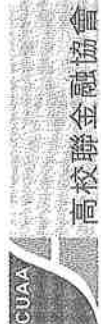 CUAA
高校聯金融協會